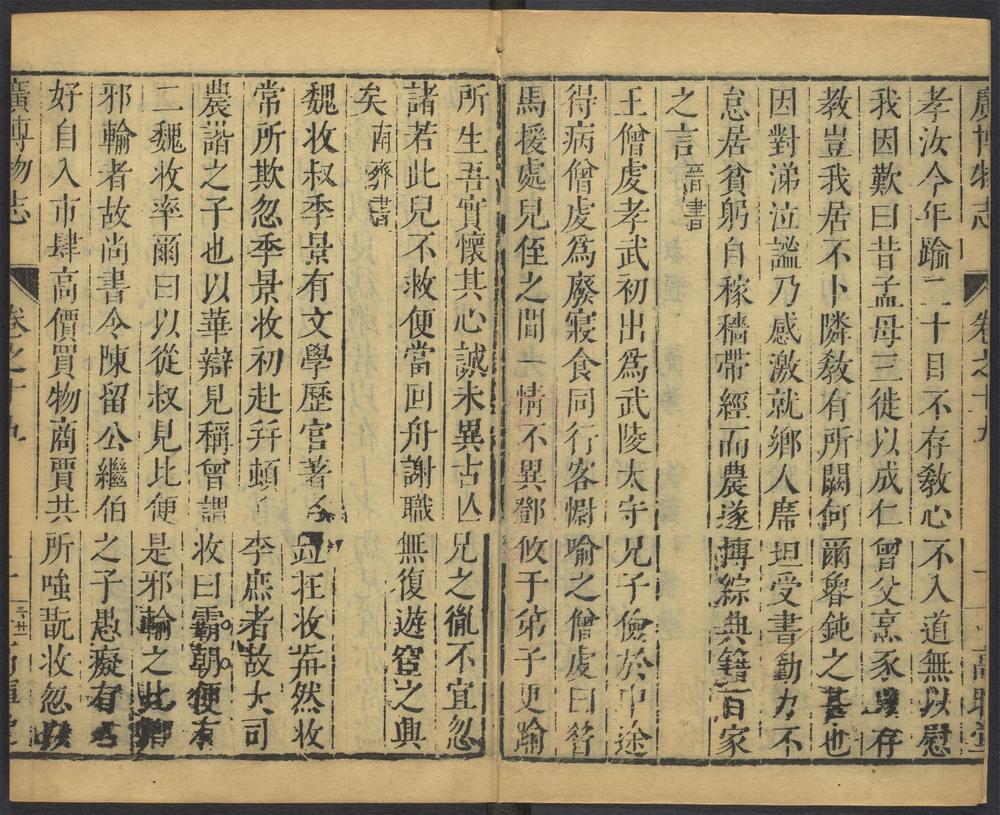 廣博物志　卷之十九
孝汝今年踰二十目不存教心不入道無以慰
我因歎曰昔孟母三徙以成仁曾父烹豕以存
教豈我居不卜隣敎有所闕何爾魯鈍之甚也
因對涕泣謐乃感激就鄉人席坦受書勤力不
怠居貧躬自稼穡帶經而農遂博綜典籍百家
之言晉書
王僧虔孝武初出爲武陵太守兄子儉於中途
得病僧虔爲廢寢食同行客慰喻之僧虔曰昔
馬援處兒侄之間一情不異鄧攸于弟子更踰
所生吾實懷其心誠未異古亡兄之胤不宜忽
諸若此兒不救便當回舟謝職無復遊宦之興
矣南齊書
魏收叔季景有文學歷官著名竝在收前然收
常所欺忽季景收初赴幷頓李庶者故大司
農諧之子也以華辯見稱曾謂收曰霸朝便有
二魏收率爾曰以從叔見比便是邪輸之比
邪輸者故尚書令陳留公繼伯之子愚癡有名
好自入市肆高價買物商賈共所嗤翫收忽
廣博物志　卷之十九